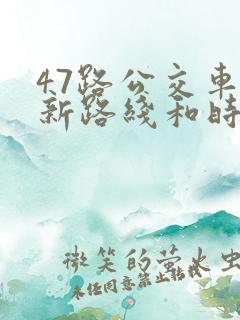 47路公交车
新路线和时
微笑的萤火虫
未经同意禁止转载